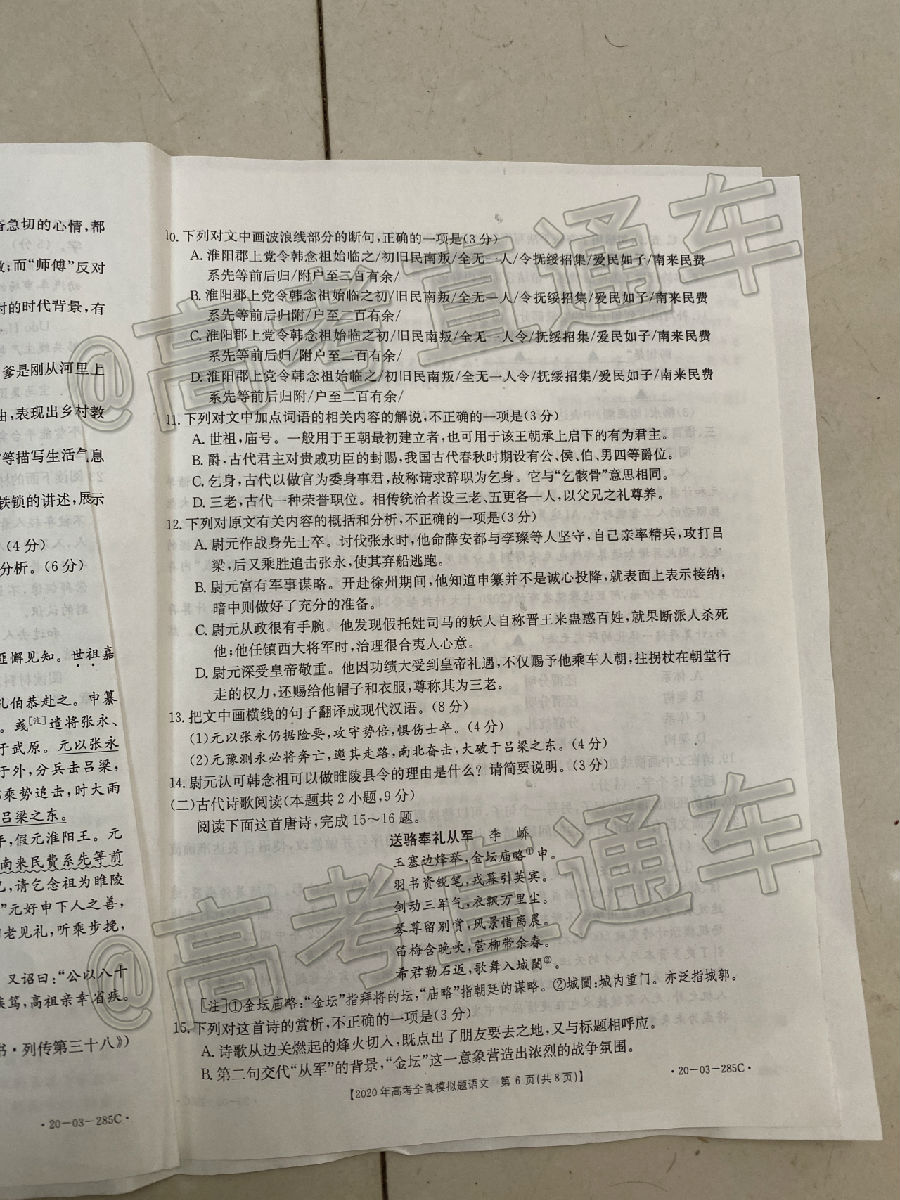 急切的心情,都
;而“师傅”反对
时的时代背景,有
爹是刚从河里上
由,表现出乡村教
等描写生活气息
铁锁的讲述,展示
(4分)
分析。(6分)
懈见知。世祖嘉
礼伯恭赴之。申纂
。或[注]遣将张永、
于武原。元以张永
于外,分兵击吕梁,
乘势追击,时大雨
吕梁之东。
年,假元淮阳王。元
南来民费系先等前
,请乞念祖为睢陵
”元好申下人之善,
老见礼,听乘步挽,
又诏曰:“公以八十
疾笃,高祖亲幸省疾。
书·列传第三十八》)
·20-03-285C·
10.下列对文中画波浪线部分的断句,正确的一项是(3分)
A.淮阳郡上党令韩念祖始临之/初旧民南叛/全无一人/令抚绥招集/爱民如子/南来民费
系先等前后归/附户至二百有余/
B.淮阳郡上党令韩念祖始临之初/旧民南叛/全无一人/令抚绥招集/爱民如子/南来民费
系先等前后归附/户至二百有余/
C.淮阳郡上党令韩念祖始临之初/旧民南叛/全无一人令/抚绥招集/爱民如子/南来民费
系先等前后归/附户至二百有余/
D.淮阳郡上党令韩念祖始临之/初旧民南叛/全无一人令/抚绥招集/爱民如子/南来民费
系先等前后归附/户至二百有余/
11.下列对文中加点词语的相关内容的解说,不正确的一项是(3分)
A.世祖,庙号。一般用于王朝最初建立者,也可用于该王朝承上启下的有为君主。
B.爵,古代君主对贵戚功臣的封赐,我国古代春秋时期设有公、侯、伯、男四等爵位。
C.乞身,古代以做官为委身事君,故称请求辞职为乞身。它与“乞骸骨”意思相同。
D.三老,古代一种荣誉职位。相传统治者设三老、五更各一人,以父兄之礼尊养。
12.下列对原文有关内容的概括和分析,不正确的一项是(3分)
A.尉元作战身先士卒。讨伐张永时,他命薛安都与李璨等人坚守,自己亲率精兵,攻打吕
梁,后又乘胜追击张永,使其弃船逃跑。
B.尉元富有军事谋略。开赴徐州期间,他知道申纂并不是诚心投降,就表面上表示接纳,
暗中则做好了充分的准备。
C.尉元从政很有手腕。他发现假托姓司马的妖人自称晋王来蛊惑百姓,就果断派人杀死
他;他任镇西大将军时,治理很合夷人心意。
D.尉元深受皇帝敬重。他因功绩大受到皇帝礼遇,不仅赐予他乘车入朝,拄拐杖在朝堂行
走的权力,还赐给他帽子和衣服,尊称其为三老。
13.把文中画横线的句子翻译成现代汉语。(8分)
(1)元以张永仍据险要,攻守势倍,惧伤士卒。(4分)
(2)元豫测永必将奔亡,遨其走路,南北奋击,大破于吕梁之东。(4分)
14.尉元认可韩念祖可以做睢陵县令的理由是什么?请简要说明。(3分)
(二)古代诗歌阅读(本题共2小题,9分)
阅读下面这首唐诗,完成15~16题。
送骆奉礼从军 李 峤
玉塞边烽举,金坛庙略①申。
羽书资锐笔,戎幕引英宾。
剑动三军气,衣飘万里尘。
琴尊留别赏,风景惜离晨。
笛梅含晚吹,营柳带余春。
希君勒石返,歌舞入城闉②。
[注]①金坛庙略:“金坛”指拜将的坛,“庙略”指朝廷的谋略。②城闉:城内重门。亦泛指城郭。
15.下列对这首诗的赏析,不正确的一项是(3分)
A.诗歌从边关燃起的烽火切入,既点出了朋友要去之地,又与标题相呼应。
B.第二句交代“从军”的背景,“金坛”这一意象营造出浓烈的战争氛围。
【2020年高考全真模拟题语文 第6页(共8页)】
·20-03-285C·
@高考直通车
@高考直通车